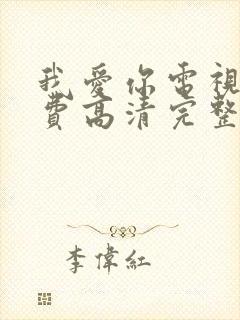 我愛你電視
費高清完整
李偉紅